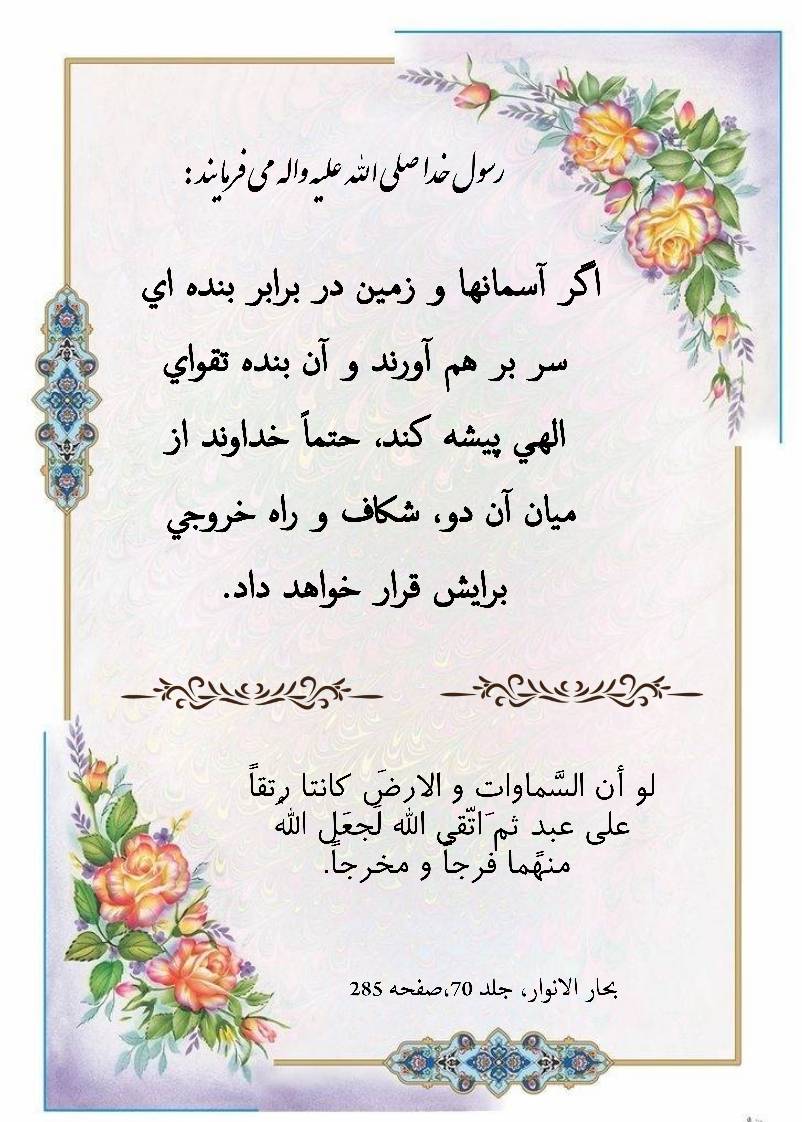 رسول خدا صلی الله علیه واله می فرمایند:
اگر آسمانها و زمين در برابر بنده اي
سر بر هم آورند و آن بنده تقواي
الهي پيشه كند، حتماً خداوند از
ميان آن دو، شكاف و راه خروجي
برايش قرار خواهد داد.
لو أن السَّماوات و الارضَ کانتا رٌتقاً
علی عبد ثم َاتّقی الله لَجعَل اللهُ
منهًما فرجاً و مخرجاً.
بحار الانوار، جلد 70،صفحه 285